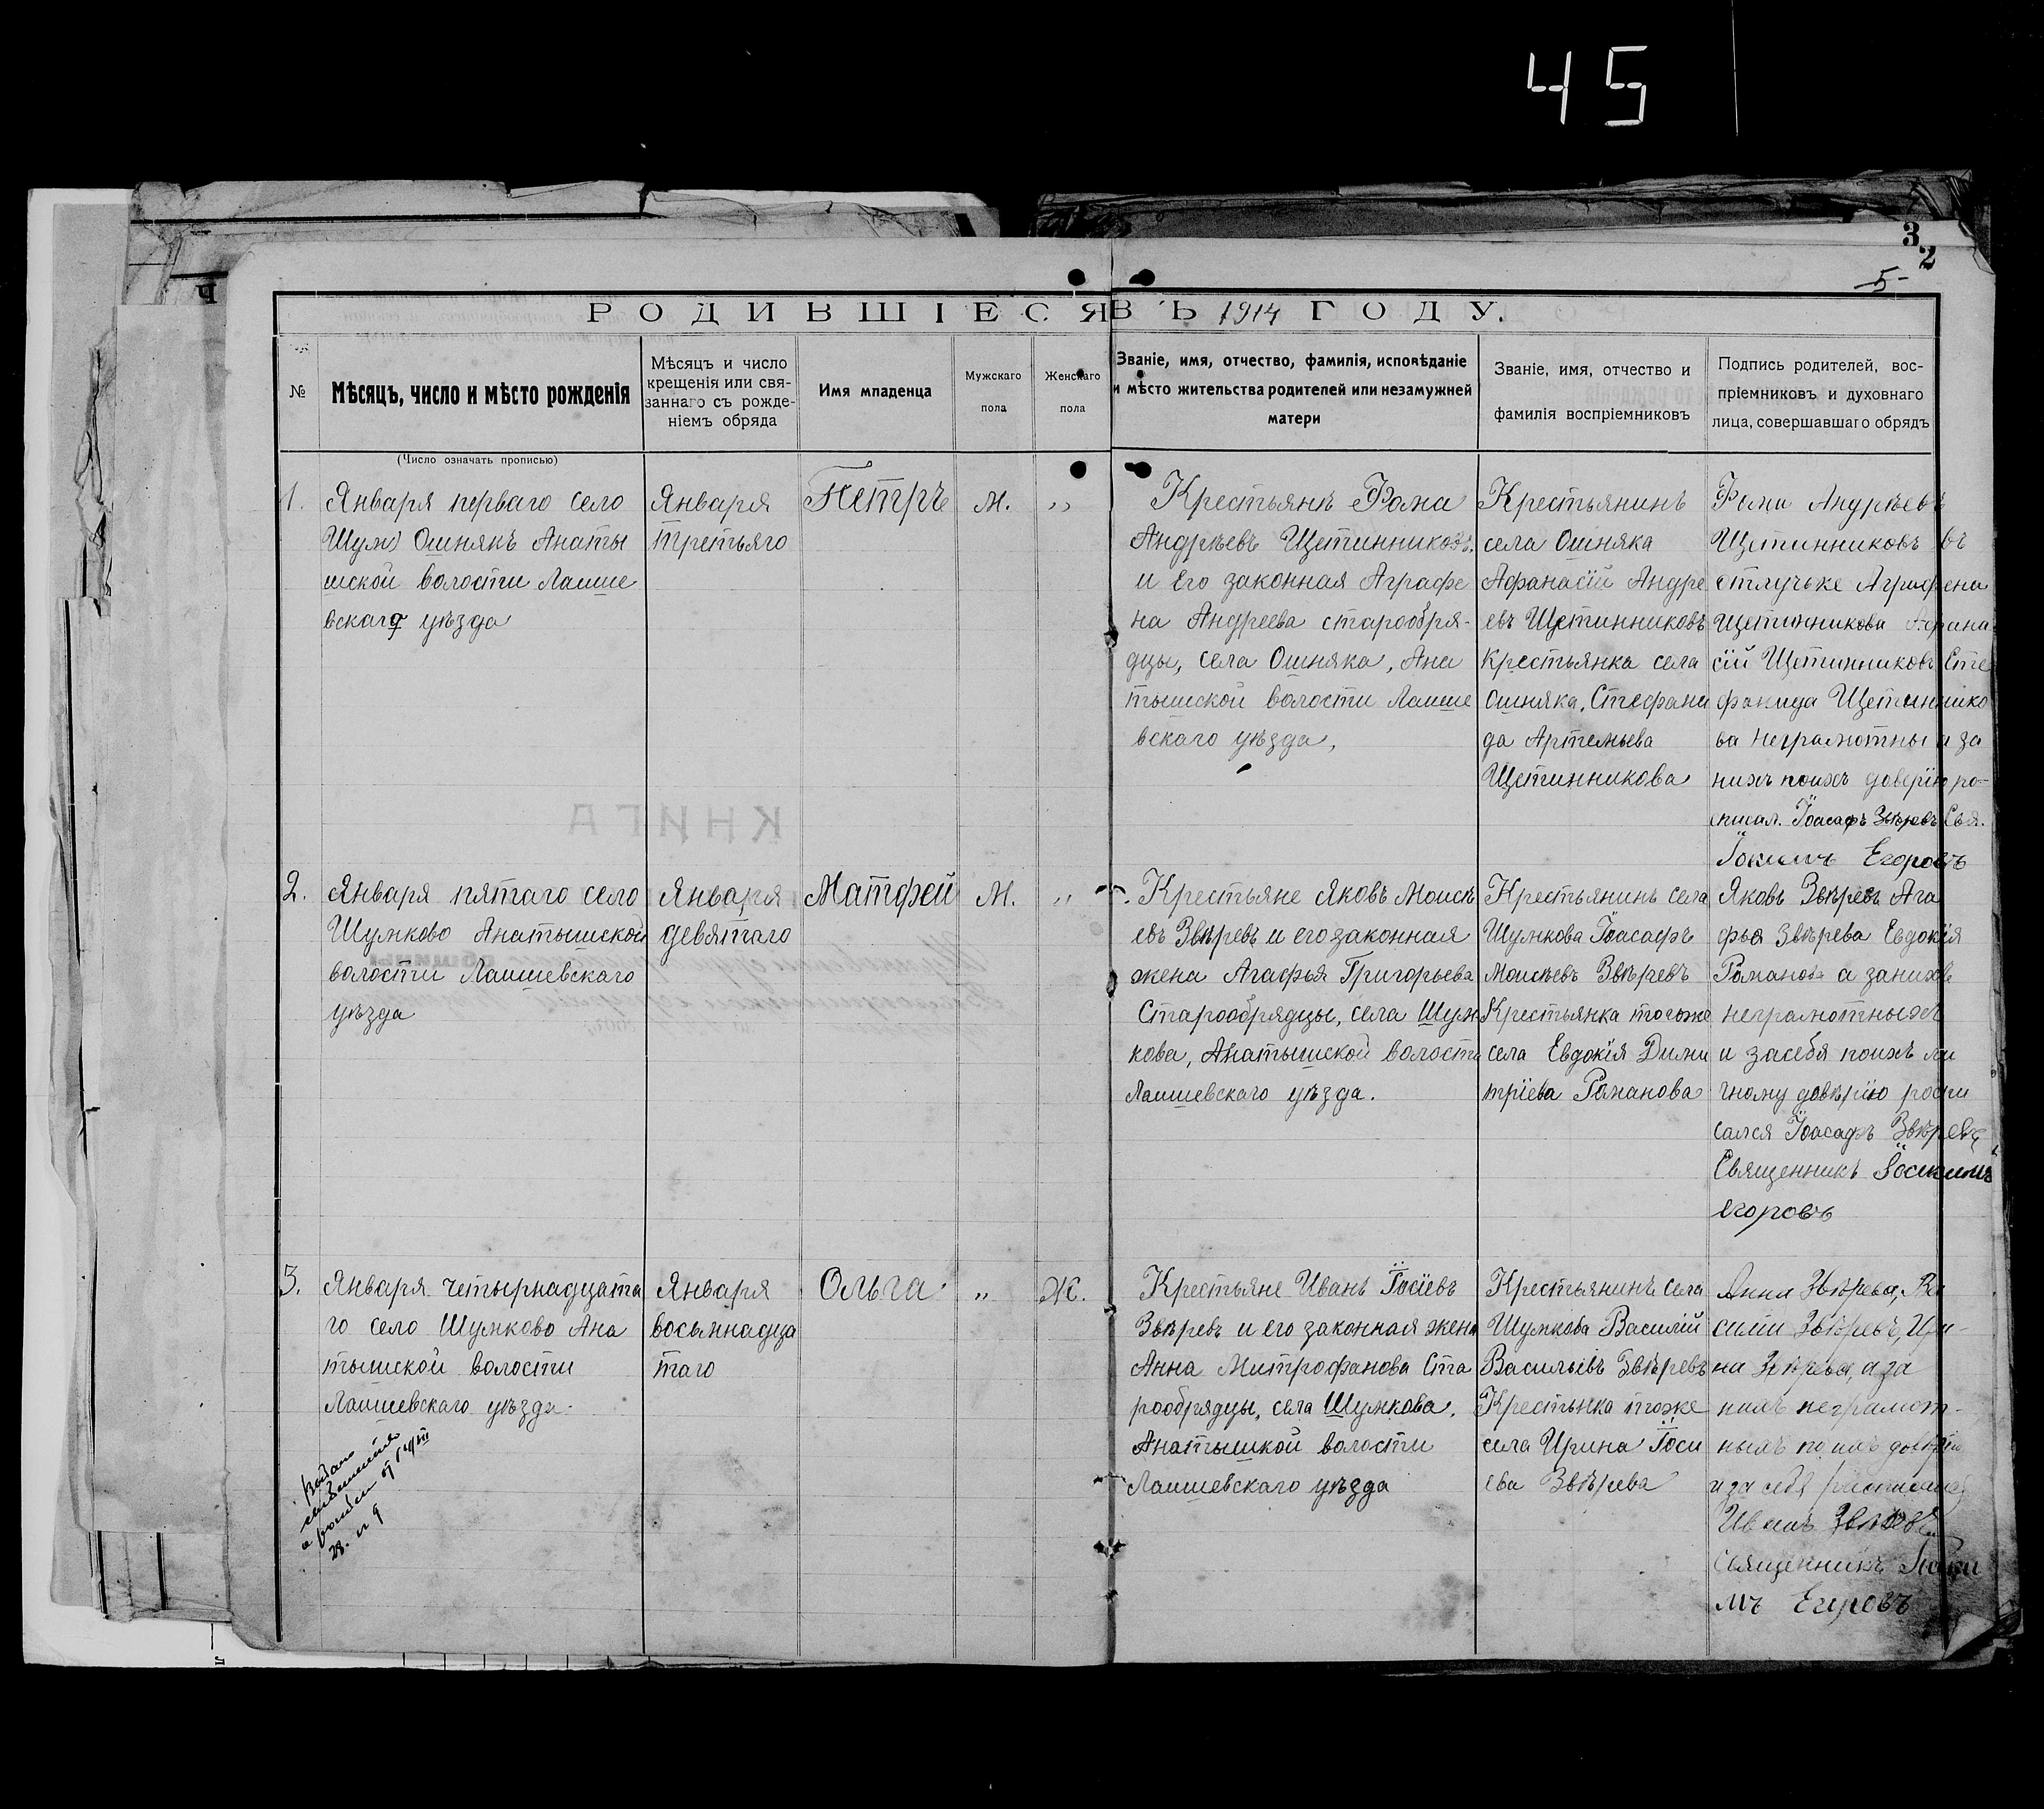 45
3
2
5-
РОДИВШІЕСЯ ВЪ 1914 ГОДУ.
№
Мѣсяцъ, число и мѣсто рожденія
Мѣсяцъ и число
крещенія или свя-
заннаго съ рожде-
ніемъ обряда
Имя младенца
Мужскаго
пола
Женскаго
пола
Званіе, имя, отчество, фамилія, исповѣданіе
и мѣсто жительства родителей или незамужней
матери
Званіе, имя, отчество и
фамилія воспріемниковъ
Подпись родителей, вос-
пріемниковъ и духовнаго
лица, совершавшаго обрядъ
(Число означать прописью)
1.
Января перваго село
Ошнякъ Анаты
шской волости Лаише
вскаго уѣзда
Января
третьяго
Петръ
м.
„
Крестьянъ Фома
Андрѣевъ Щетинниковъ.
и Его законная Аграфе
на Андреева старообря-
дцы, села Ошняка, Ана
тышской волости Лаише
вскаго уѣзда,
Крестьянинъ
села Ошняка
Афанасій Андре
евъ Щетинниковъ
Крестьянка села
Ошняка, Стефани
да Артемьева
Щетинникова
Фома Андрѣевъ
Щетинниковъ
Аграфена
Щетинникова Афана
сій Щетинниковъ Сте
фанида Щетиннико
ва неграмотны а за
нихъ поихъ доверію ро-
списал. Іоасафъ Звѣревъ Свя.
Іокимъ Егоровъ
2.
Января пятаго село
Шумково Анатышской
волости Лаишевскаго
уѣзда
Января
девятаго
Матфей
М.
„
Крестьяне Яковъ Моисѣ
евъ Звѣревъ и его законная
жена Агафья Григорьева
Старообрядцы, села Шум
кова, Анатышской волости
Лаишевскаго уѣзда.
Крестьянинъ села
Шумкова Іоасафъ
Моисѣевъ Звѣревъ
Крестьянка тогоже
села Евдокія Дими
тріева Романова
Яковъ Звѣревъ Ага
фья Звѣрева Евдокія
Романова а занихъ
неграмотныхъ
и засебя поихъ ли
чному довѣрію роспи
сался Іоасафъ Звѣревъ
Священникъ Іоакимъ
Егоровъ
3.
Января четырнадцата
го село Шумково Ана
тышской волости
Лаишевскаго уѣзда.
Января
восьмнадца
таго
Ольга
„
Ж.
Крестьяне Иванъ Іосіевъ
Звѣревъ и его законная жена
Анна Митрофанова Ста
рообрядцы, села Шумкова,
Анатышкой волости
Лаишевскаго уѣзда
Крестьянинъ села
Шумкова Василій
Васильевъ Звѣревъ
Крестьнка тоже
села Ирина Іоси
ева Звѣрева
Анна Звѣрева, Ва
силій Звѣревъ, Ири-
на Звѣрева, а за
нихъ неграмот-
ныхъ по ихъ довѣрію
и за себя
Иванъ Звѣревъ
Священникъ Іоаки
мъ Егоровъ